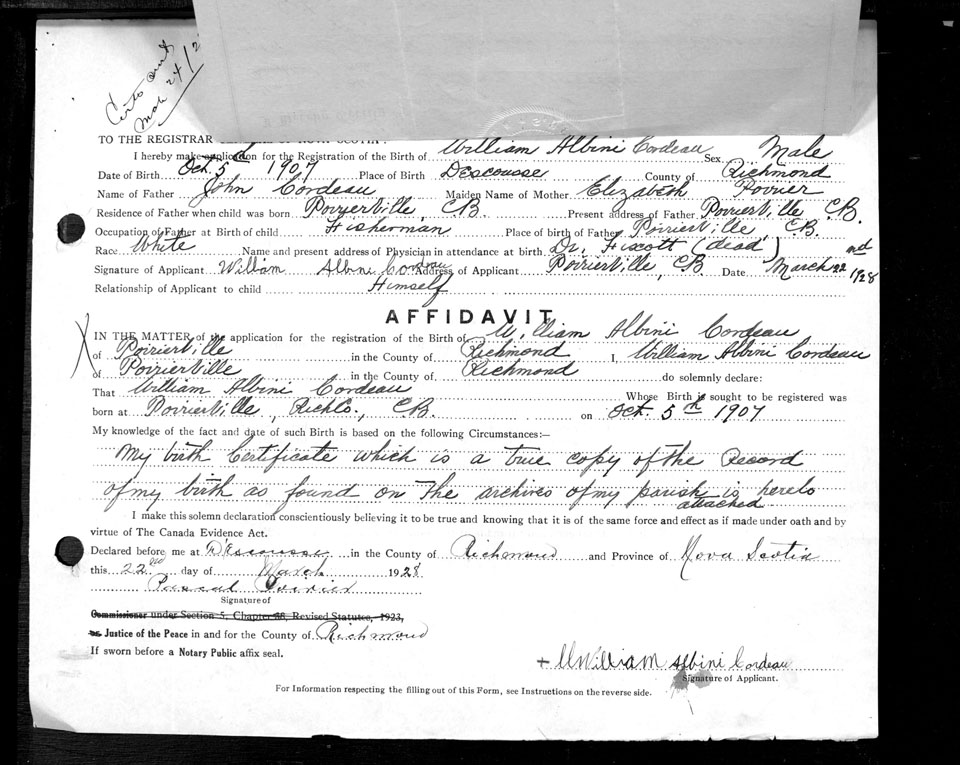 Certs sent
Mar 24/2
TO THE REGISTRAR
I hereby make application for the Registration of the Birth of William Albini Cordeau Sex Male
Date of Birth Oct. 5th 1907 Place of Birth Descousse County of Richmond
Name of Father John Cordeau Maiden Name of Mother Elizabeth Poirier
Residence of Father when child was born Poirierville, C.B. Present address of Father Poirierville C.B.
Occupation of Father at Birth of child Fisherman Place of birth of Father Poirierville, C.B.
Race White Name and present address of Physician in attendance at birth Dr. Fiscott (dead)
Signature of Applicant William Albini Cordeau Address of Applicant Poirierville, C.B. Date March 22nd 1928
Relationship of Applicant to child Himself
AFFIDAVIT
IN THE MATTER of the application for the registration of the Birth of William Albini Cordeau
of Poirierville in the County of Richmond I, William Albini Cordeau
of Poirierville in the County of Richmond do solemnly declare:
That William Albini Cordeau Whose Birth is sought to be registered was
born at Poirierville, Rich Co., C.B. on Oct. 5th 1907
My knowledge of the fact and date of such Birth is based on the following Circumstances:—
My birth Certificate which is a true copy of the Record
of my birth as found on the archives of my parish is hereto
attached
I make this solemn declaration conscientiously believing it to be true and knowing that it is of the same force and effect as if made under oath and by
virtue of The Canada Evidence Act.
Declared before me at D'Escousse in the County of Richmond and Province of Nova Scotia
this 22nd day of March 1928
Pascal Poirier
Signature of
Commissioner under Section 5, Chapter 38, Revised Statutes, 1923,
or Justice of the Peace in and for the County of Richmond
If sworn before a Notary Public affix seal.
+ William Albini Cordeau
Signature of Applicant.
For Information respecting the filling out of this Form, see Instructions on the reverse side.